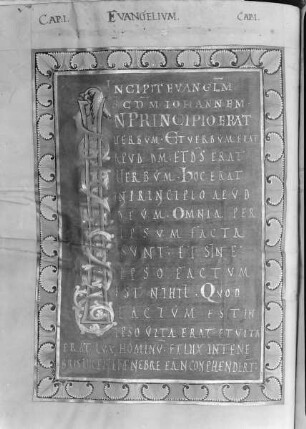 CAP. I. EVANGELIUM. CAP. I.
INCIPIT EVANGLM
SCDM IOHANNEM
IN PRINCIPIO ERAT
VERBUM · ET VERBUM ERAT
APUD DM · ET DS ERAT
VERBUM · HOC ERAT
IN PRINCIPIO APUD
DEUM · OMNIA PER
IPSUM FACTA
SUNT · ET SINE
IPSO FACTUM
EST NIHIL · QUOD
FACTUM EST IN
IPSO VITA ERAT · ET VITA
ERAT LUX HOMINU · ET LUX IN TENE
BRIS LUCET · ET TENEBRE EAM CONPHENDERT